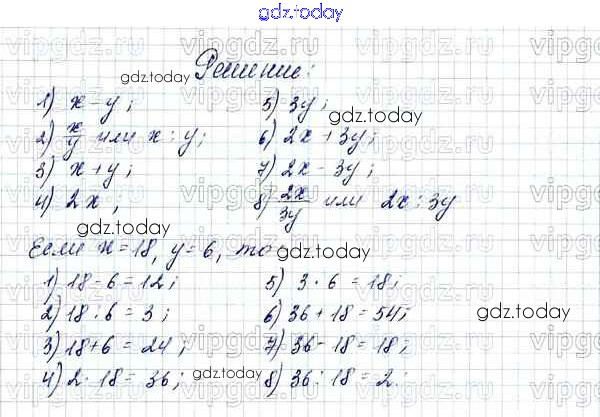 gdz.today
vipgdz.ru vipgdz.ru vipgdz.ru vipgdz.ru
Решение:
gdz.today
1) x – y;
2) x/y или x : y;
3) x + y;
4) 2x;
5) 3y;
gdz.today
6) 2x + 3y;
7) 2x – 3y;
8) 2x/3y или 2x : 3y
gdz.today
Если x = 18, y = 6, то:
1) 18 – 6 = 12;
2) 18 : 6 = 3;
3) 18 + 6 = 24;
4) 2 · 18 = 36;
gdz.today
5) 3 · 6 = 18;
6) 36 + 18 = 54;
gdz.today
7) 36 – 18 = 18;
8) 36 : 18 = 2.